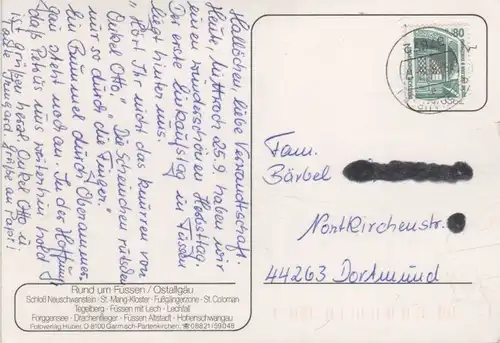 Hallöchen, liebe Verwandtschaft.
Heute, Mittwoch 25.9 haben wir
einen wunderschönen Herbsttag.
Der erste Einkaufstag in Füssen
liegt hinter uns.
"Hört Ihr nicht das knurren von
Onkel Otto", "Die Scheinchen rutschen
nur so durch die Finger".
Ein Bummel durch Oberammer-
gau steht noch an. In der Hoffnung
daß Petrus uns weiterhin hold
ist grüßen herzl. Onkel Otto u.
Tante Irmgard, Grüße an Papi!
80
Fam.
Bärbel
Nortkirchenstr.
44263 Dortmund
Rund um Füssen / Ostallgäu
Schloß Neuschwanstein · St.-Mang-Kloster · Fußgängerzone · St. Coloman
Tegelberg · Füssen mit Lech · Lechfall
Forggensee · Drachenflieger · Füssen Altstadt · Hohenschwangau
Fotoverlag Huber, D-8100 Garmisch-Partenkirchen, ☎ 08821/59048